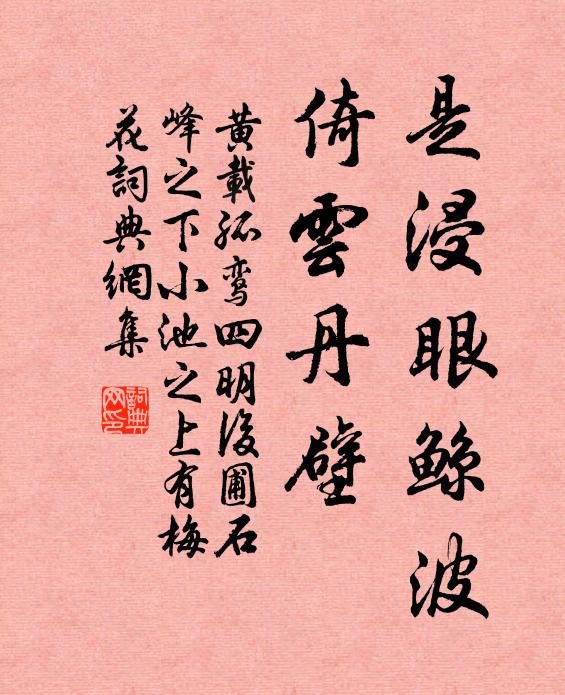 是浸眼鲸波
倚雲丹壁
黄載孤鸾四明後圃石
峰之下小池之上有梅
花詞典網集
詞典
网印